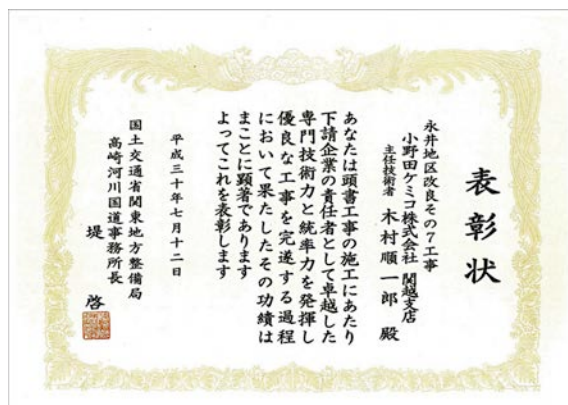 表彰状
永井地区改良その7工事
小野田ケミコ株式会社 関越支店
主任技術者 木村順一郎 殿
あなたは頭書工事の施工にあたり
下請企業の責任者として卓越した
専門技術力と統率力を発揮し
優良な工事を完遂する過程
において果たしたその功績は
まことに顕著であります
よってこれを表彰します
平成三十年七月十二日
国土交通省関東地方整備局
高崎河川国道事務所長 堤 啓